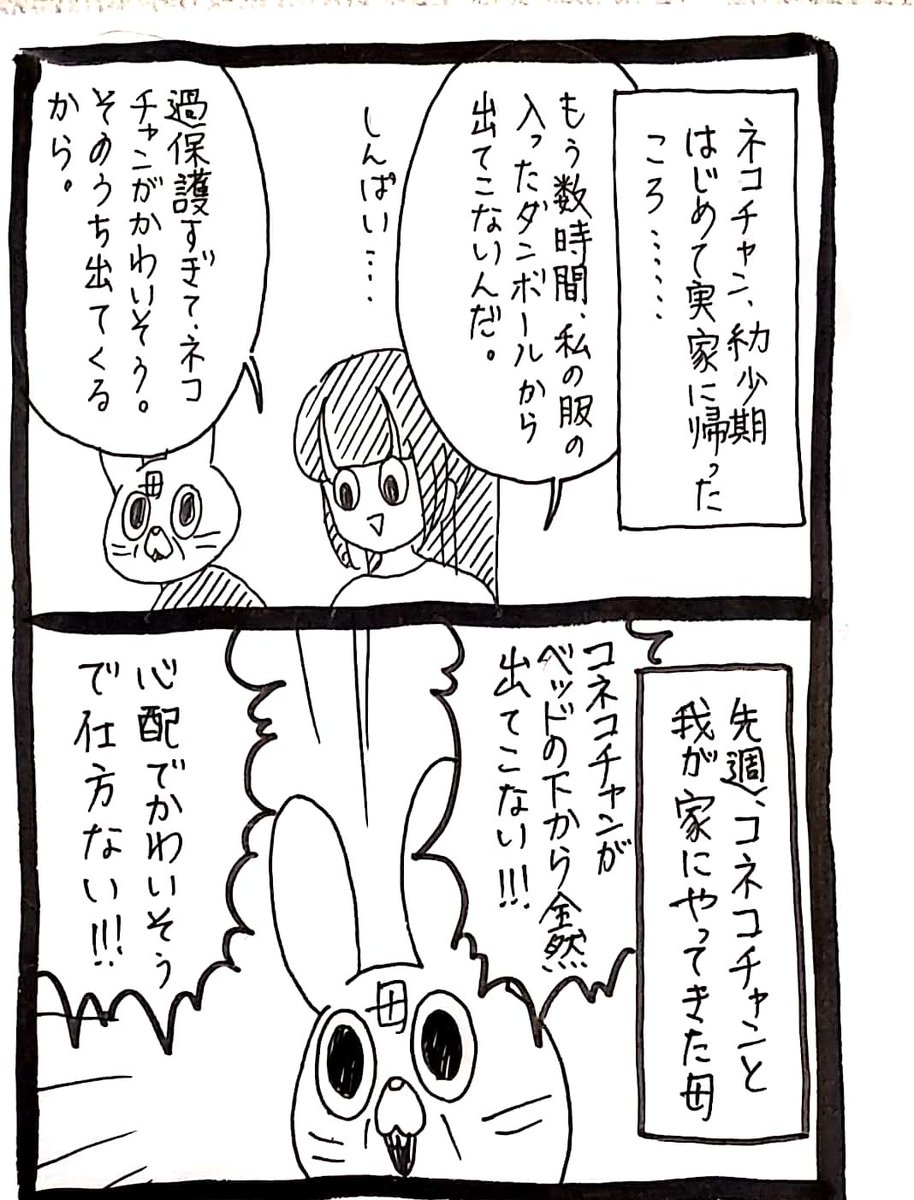 ネコチャン、幼少期
はじめて実家に帰った
ころ……
もう数時間、私の服の
入ったダンボールから
出てこないんだ。
しんぱい….
過保護すぎて、ネコ
チャンがかわいそう。
そのうち出てくる
から。
母
先週、コネコチャンと
我が家にやってきた母
コネコチャンが
ベッドの下から全然
出てこない!!!
心配でかわいそう
で仕方ない!!!
母